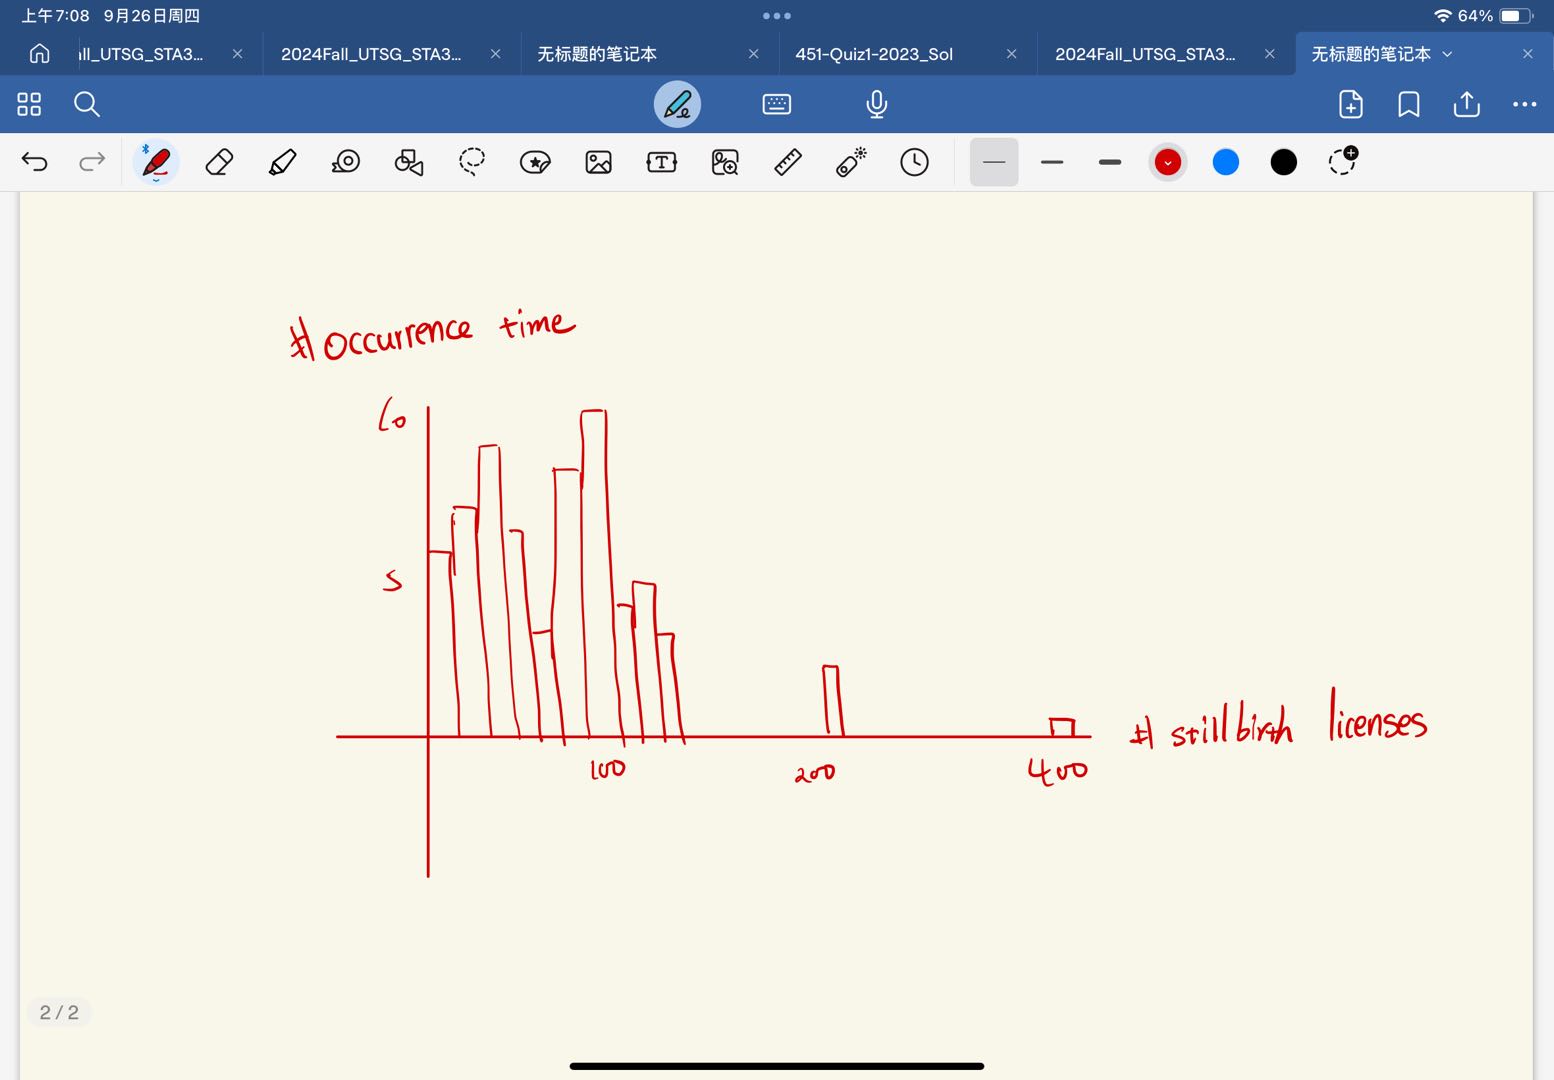 上午7:08 9月26日周四
64%
ill_UTSG_STA3...
2024Fall_UTSG_STA3...
无标题的笔记本
451-Quiz1-2023_Sol
2024Fall_UTSG_STA3...
无标题的笔记本
# occurrence time
10
5
100
200
400
# stillbirth licenses
2 / 2